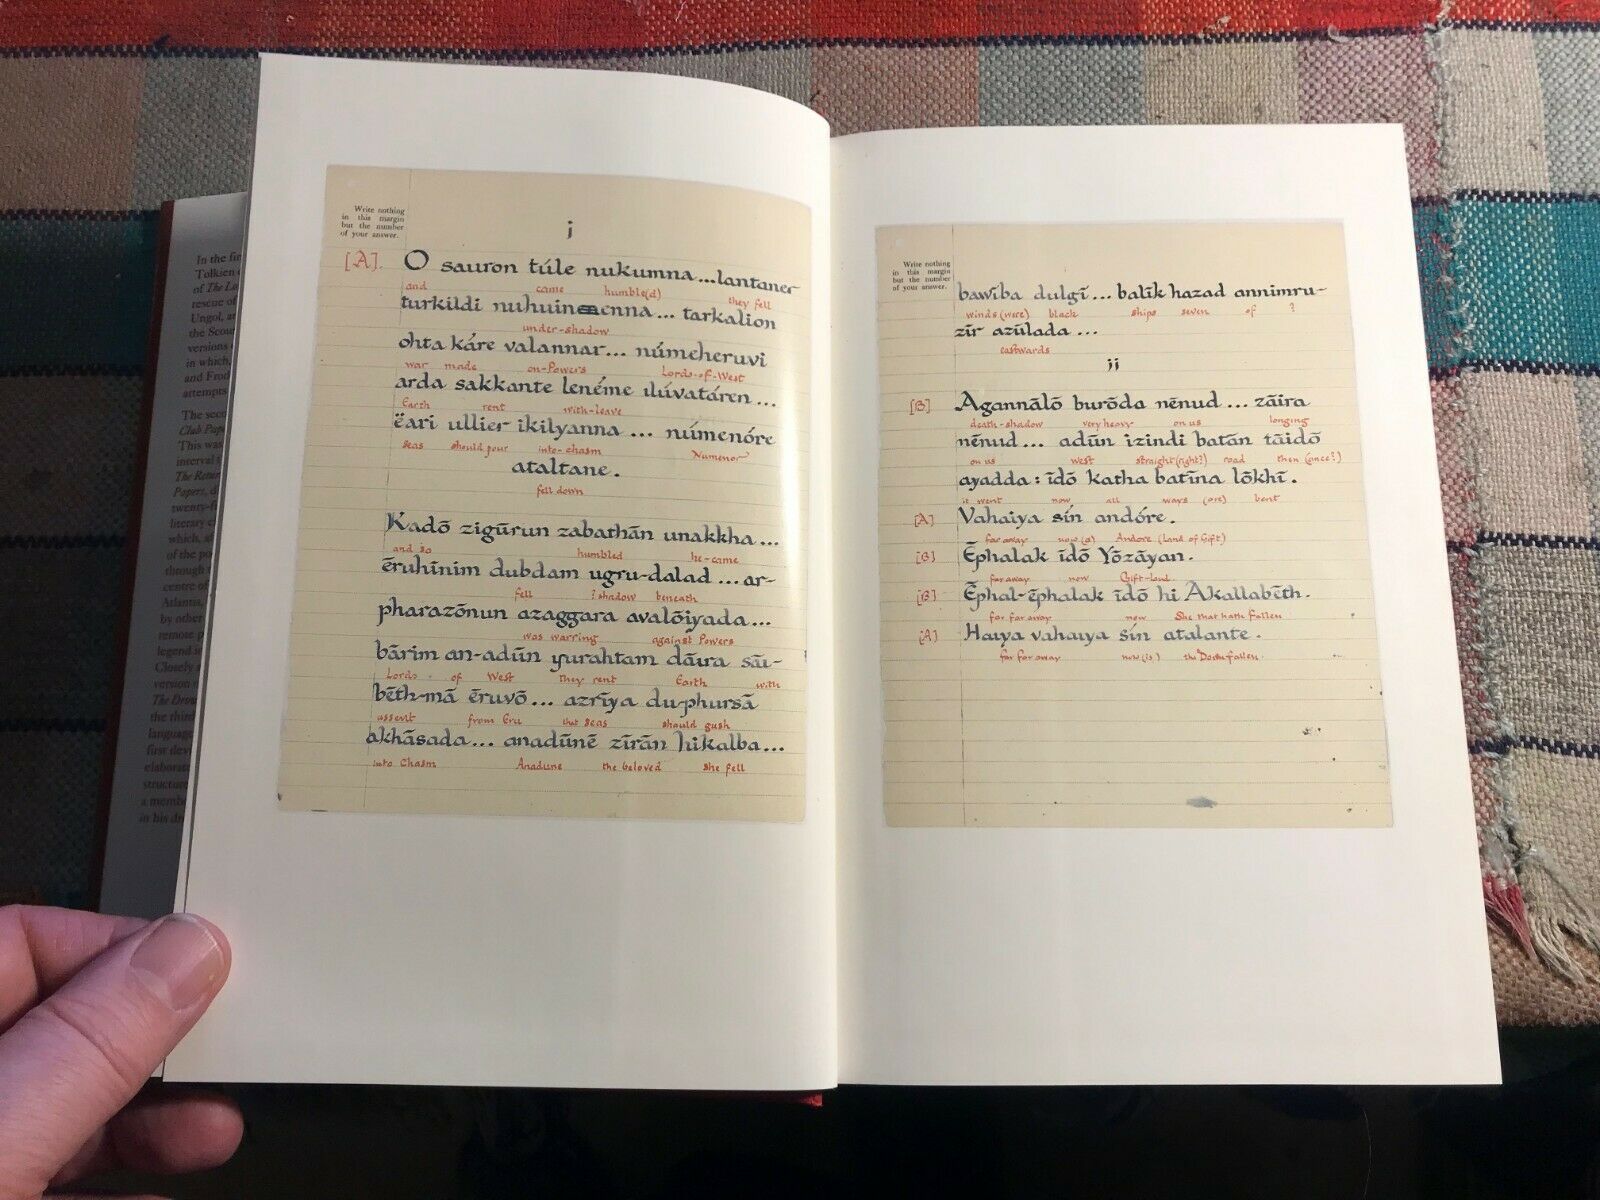 In the fir
Tolkien
of The Lo
rescue of
Ungol, a
the Scou
versions
in which,
and Frod
attempts
The seco
Club Pape
This was
interval
The Retur
Papers, d
twenty-f
literary c
which, a
of the po
through
centre of
Atlantis,
by other
remote p
legend i
Closely a
version
The Drow
the third
language
first dev
elaborat
structure
a membe
in his dr
Write nothing
in this margin
but the number
of your answer.
j
[A]. O sauron túle nukumna...lantaner
and came humble(d) they fell
turkildi nuhuinenna... tarkalion
under-shadow
ohta káre valannar... númeheruvi
war made on-Powers Lords-of-West
arda sakkante lenéme ilúvatáren...
Earth rent with-leave
ëari ullier ikilyanna ... númenóre
seas should pour into-chasm Numenor
ataltane.
fell down
Kadō zigūrun zabathān unakkha...
and so humbled he-came
ēruhīnim dubdam ugru-dalad... ar-
fell ?shadow beneath
pharazōnun azaggara avalōiyada...
was warring against Powers
bārim an-adūn yurahtam dāira sāi-
Lords of West they rent Earth with
bēth-mā ēruvō... azrīya du-phursā
assent from Eru that seas should gush
akhāsada... anadūnē zīrān hikalba...
into Chasm Anadune the beloved she fell
Write nothing
in this margin
but the number
of your answer.
bawība dulgī... balīk hazad annimru-
winds (were) black ships seven of ?
zīr azūlada ...
eastwards
ij
[B] Agannālō burōda nēnud... zāira
death-shadow very heavy on us longing
nēnud... adūn izindi batān tāidō
on us west straight (right?) road then (once?)
ayadda: īdō katha batīna lōkhī.
it went now all ways (are) bent
[A] Vahaiya sín andóre.
far away now (is) Andore (Land of Gift)
[B] Ēphalak īdō Yōzāyan.
far away now Gift-land
[B] Ēphal-ēphalak īdō hi Akallabēth.
far far away now She that hath Fallen
[A] Haiya vahaiya sín atalante.
far far away now (is) the Downfallen.